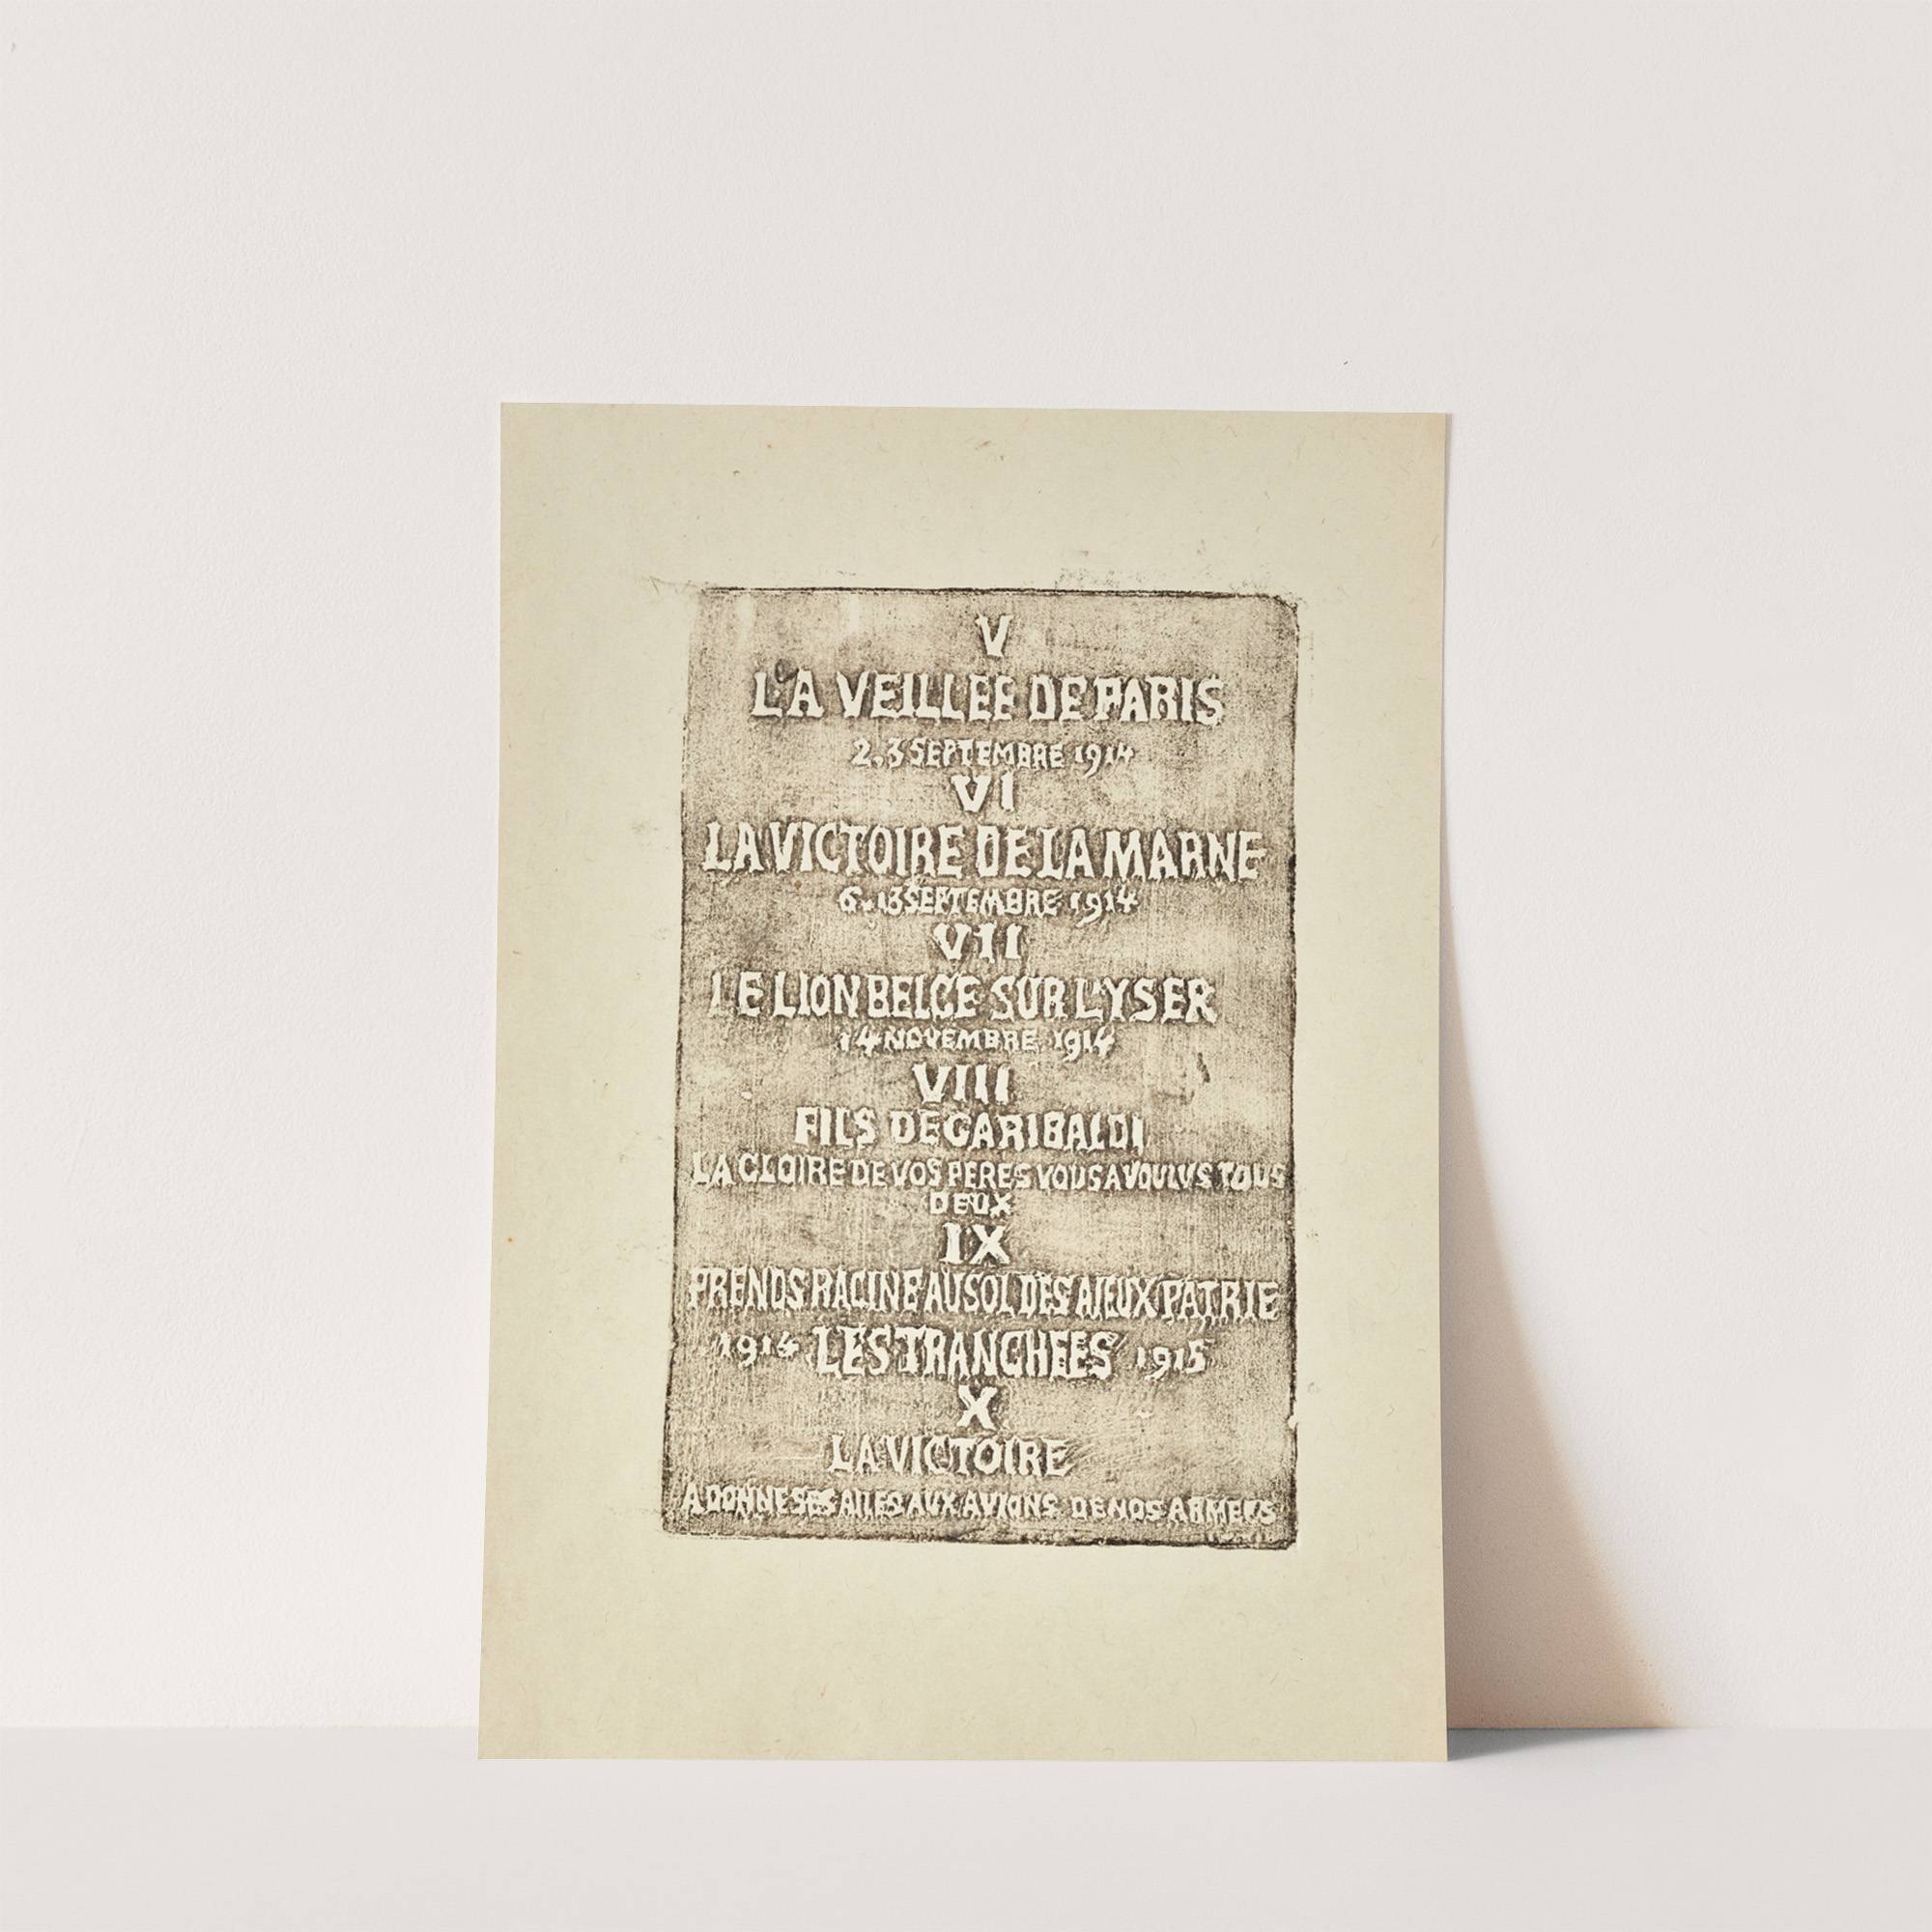 V
LA VEILLEE DE PARIS
2.3 SEPTEMBRE 1914
VI
LA VICTOIRE DE LA MARNE
6.13 SEPTEMBRE 1914
VII
LE LION BELGE SUR L'YSER
14 NOVEMBRE 1914
VIII
FILS DE GARIBALDI
LA GLOIRE DE VOS PERES VOUS A VOULUS TOUS
DEUX
IX
PRENDS RACINE AU SOL DES AIEUX PATRIE
1914 LES TRANCHEES 1915
X
LA VICTOIRE
A DONNE SES AILES AUX AVIONS DE NOS ARMEES